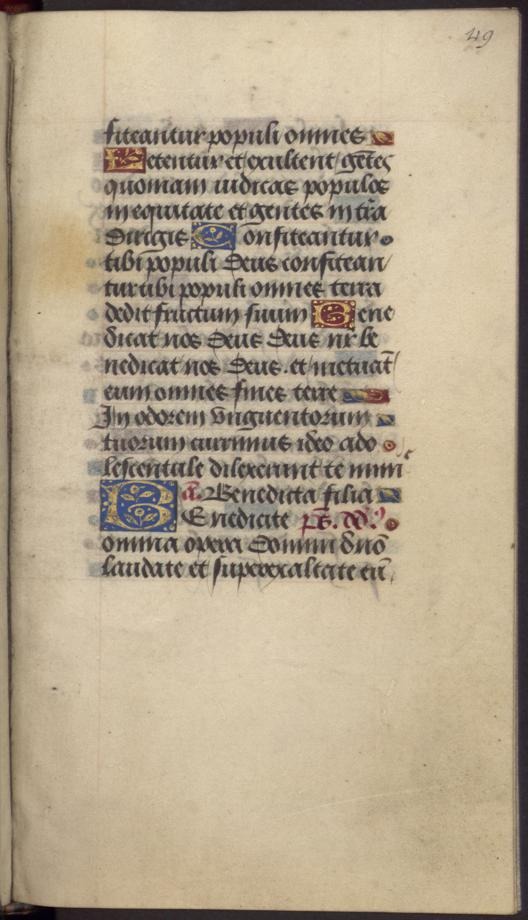 49
fiteantur populi omnes
Letentur et exultent gẽtes
quoniam iudicas populos
in equitate et gentes in tr̃a
dirigis Confiteantur
tibi populi deus confitean
tur tibi populi omnes terra
dedit fructum suum Bene
dicat nos deus deus nr̃ be
nedicat nos deus. et metuãt
eum omnes fines terre
In odorem vnguentorum
tuorum currimus ideo ado
lescentule dilexerunt te nimis
a. Benedicta filia
BEnedicite ps. dd.
omnia opera domini dño
laudate et superexaltate eũ